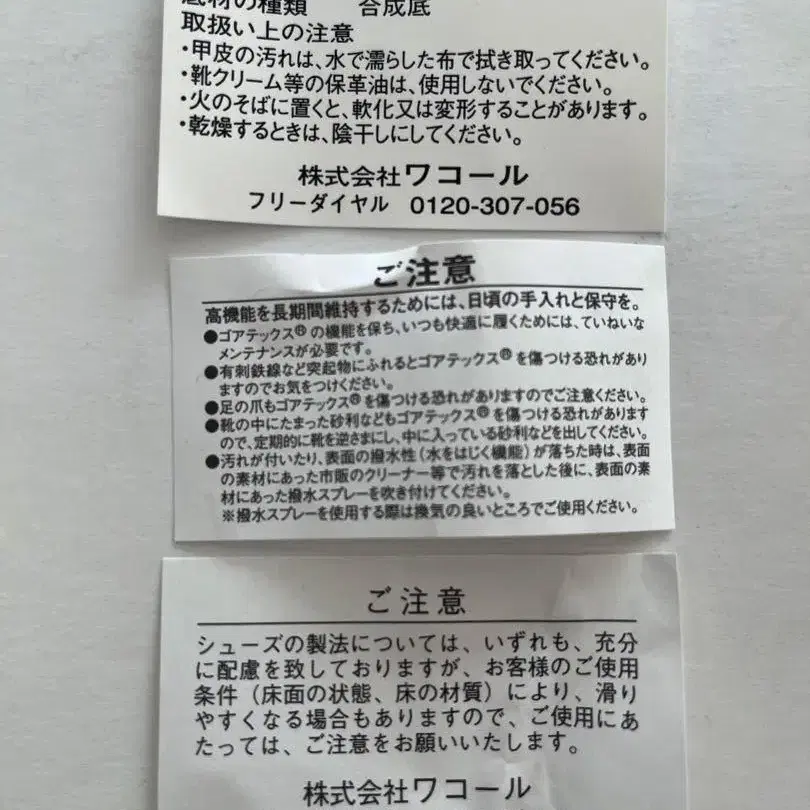 底材の種類　合成底
取扱い上の注意
・甲皮の汚れは、水で濡らした布で拭き取ってください。
・靴クリーム等の保革油は、使用しないでください。
・火のそばに置くと、軟化又は変形することがあります。
・乾燥するときは、陰干しにしてください。
株式会社ワコール
フリーダイヤル 0120-307-056
ご注意
高機能を長期間維持するためには、日頃の手入れと保守を。
●ゴアテックス®の機能を保ち、いつも快適に履くためには、ていねいな
メンテナンスが必要です。
●有刺鉄線など突起物にふれるとゴアテックス®を傷つける恐れがあり
ますのでお気をつけください。
●足の爪もゴアテックス®を傷つける恐れがありますのでご注意ください。
●靴の中にたまった砂利などもゴアテックス®を傷つける恐れがあります
ので、定期的に靴を逆さまにし、中に入っている砂利などを出してください。
●汚れが付いたり、表面の撥水性（水をはじく機能）が落ちた時は、表面
の素材にあった市販のクリーナー等で汚れを落とした後に、表面の素
材にあった撥水スプレーを吹き付けてください。
※撥水スプレーを使用する際は換気の良いところでご使用ください。
ご注意
シューズの製法については、いずれも、充分
に配慮を致しておりますが、お客様のご使用
条件（床面の状態、床の材質）により、滑り
やすくなる場合もありますので、ご使用にあ
たっては、ご注意をお願いいたします。
株式会社ワコール